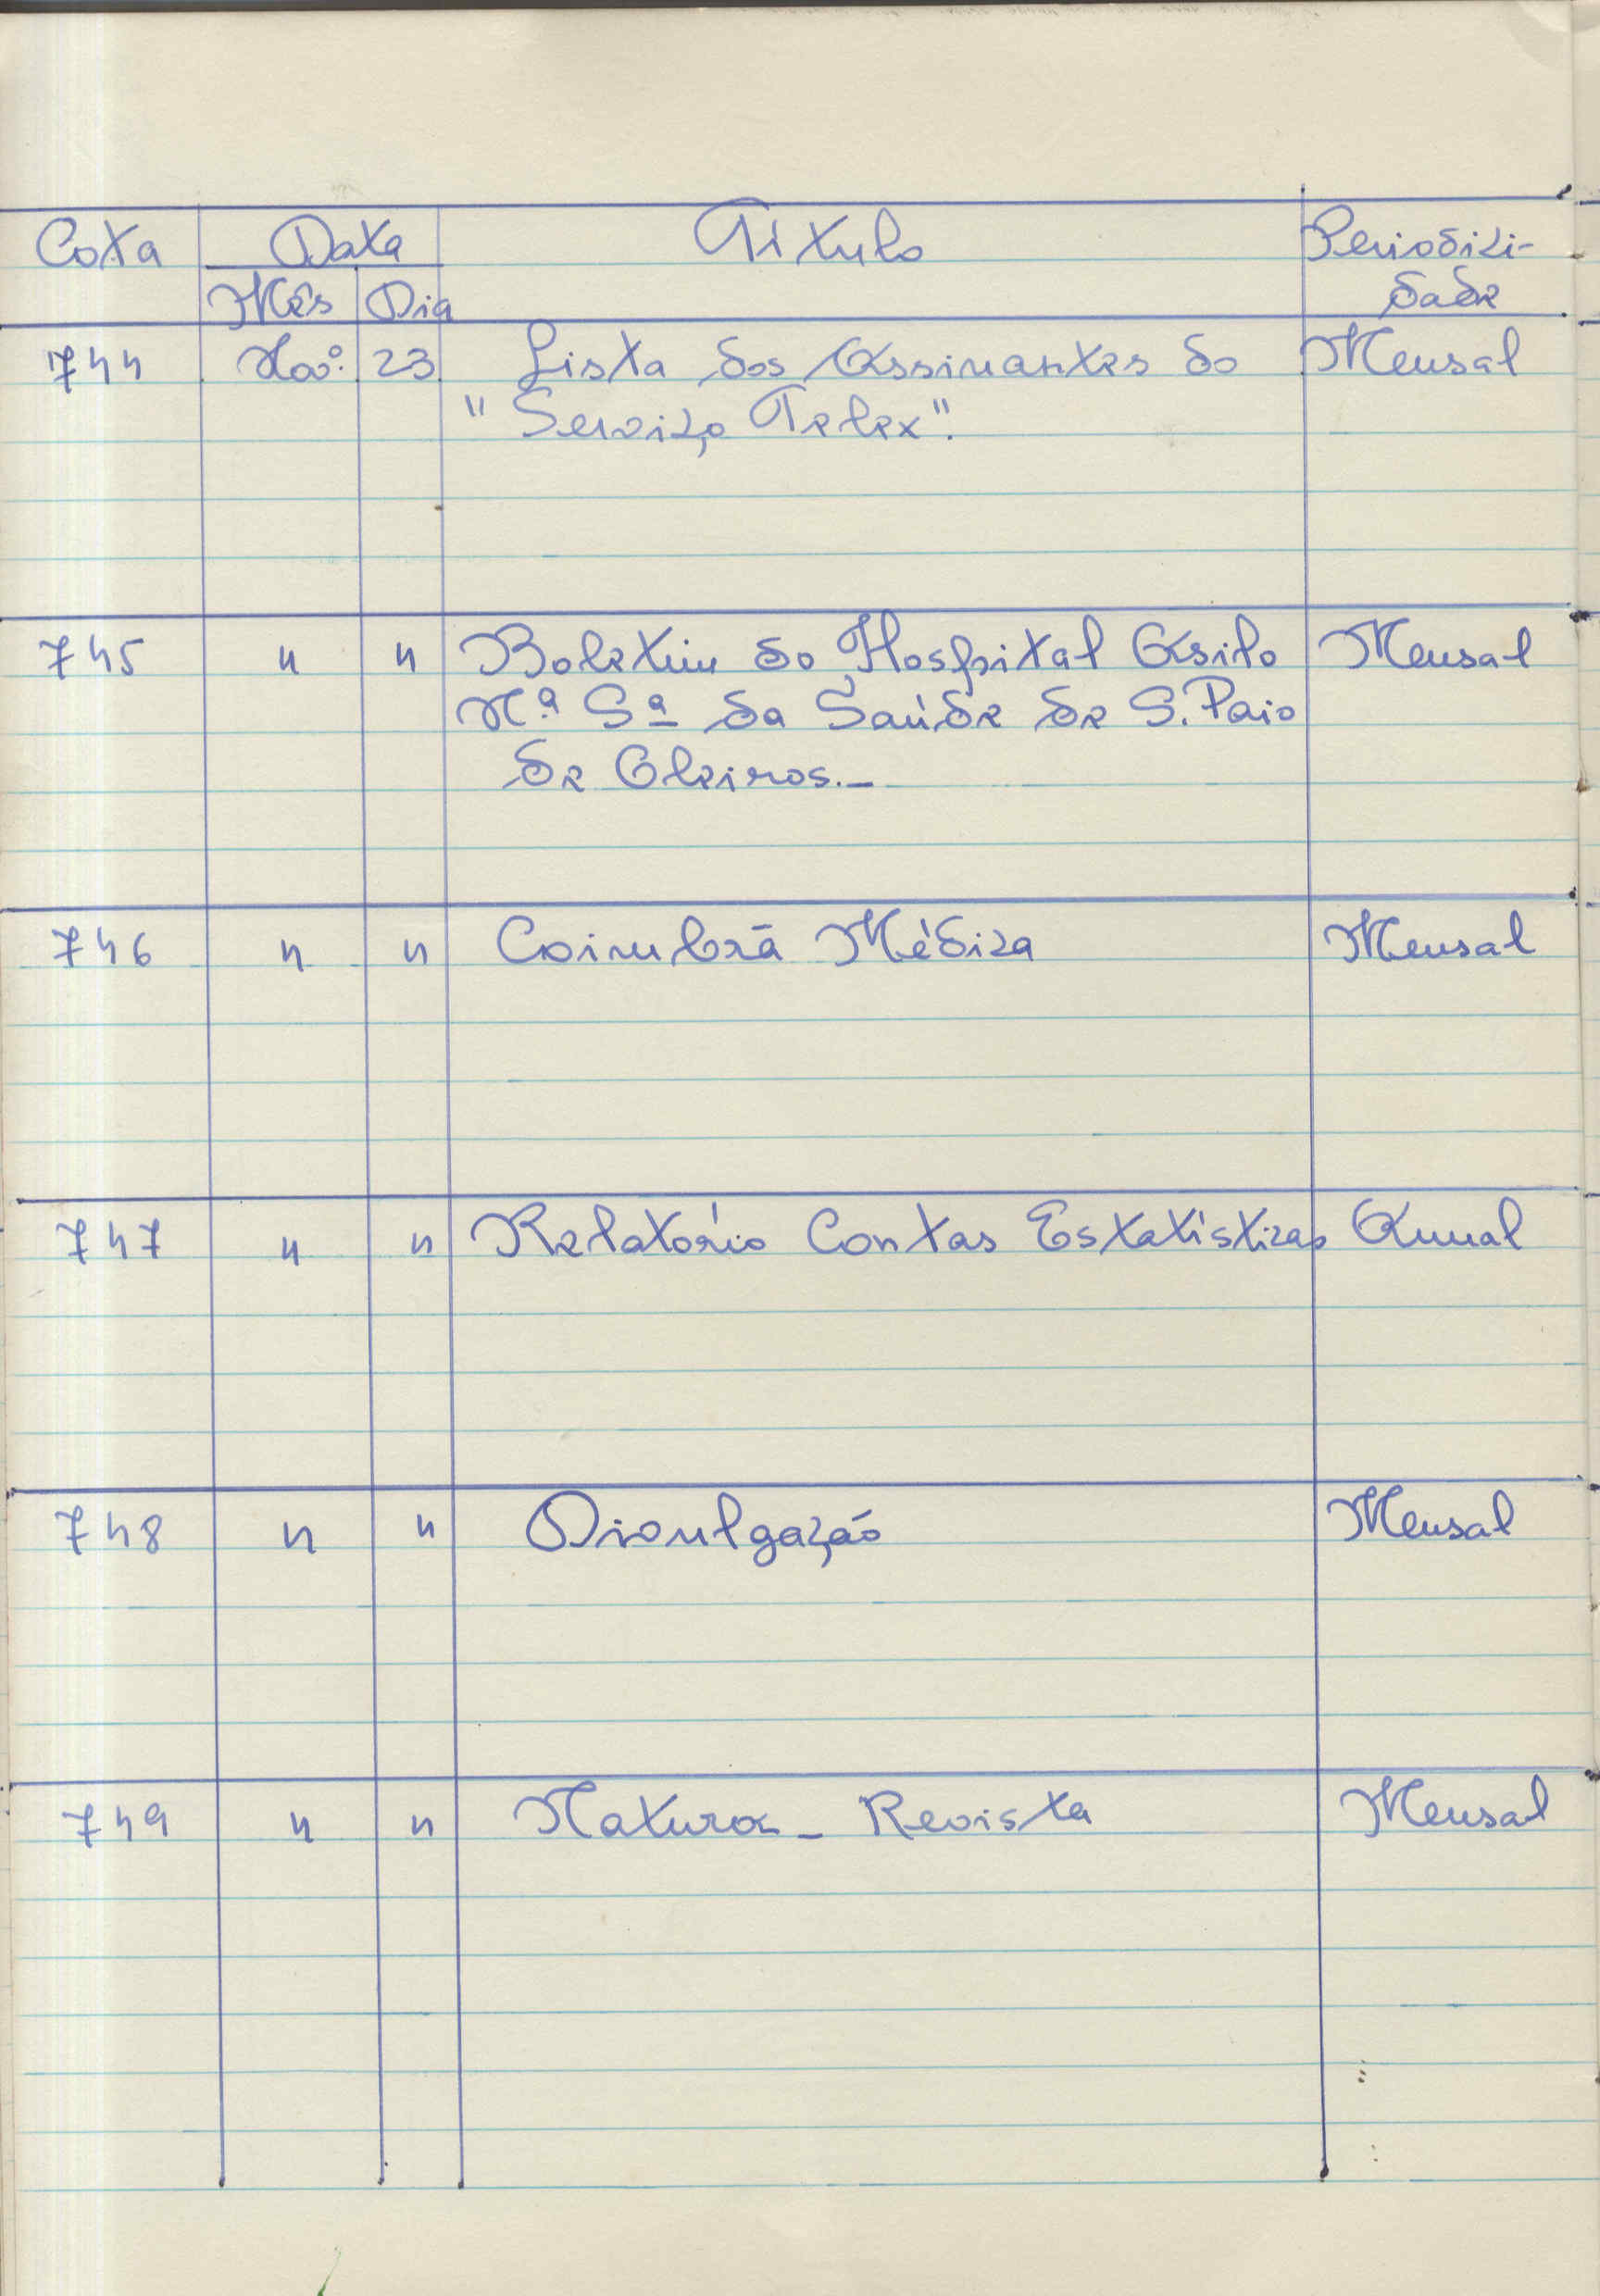 Cota Data Título Periodici-
Mês Dia dade
744 Nov.º 23 Lista dos Assinantes do Mensal
"Serviço Telex".
745 " " Boletim do Hospital Asilo Mensal
N.ª Sª da Saúde de S. Paio
de Oleiros._
746 " " Coimbra Médica Mensal
747 " " Relatório Contas Estatísticas Anual
748 " " Divulgação Mensal
749 " " Natura_ Revista Mensal